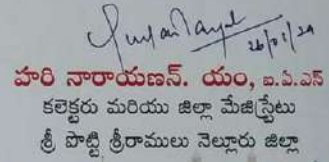 26/01/24
హరి నారాయణన్. యం, ఐ.ఏ.ఎస్
కలెక్టరు మరియు జిల్లా మేజిస్ట్రేటు
శ్రీ పొట్టి శ్రీరాములు నెల్లూరు జిల్లా